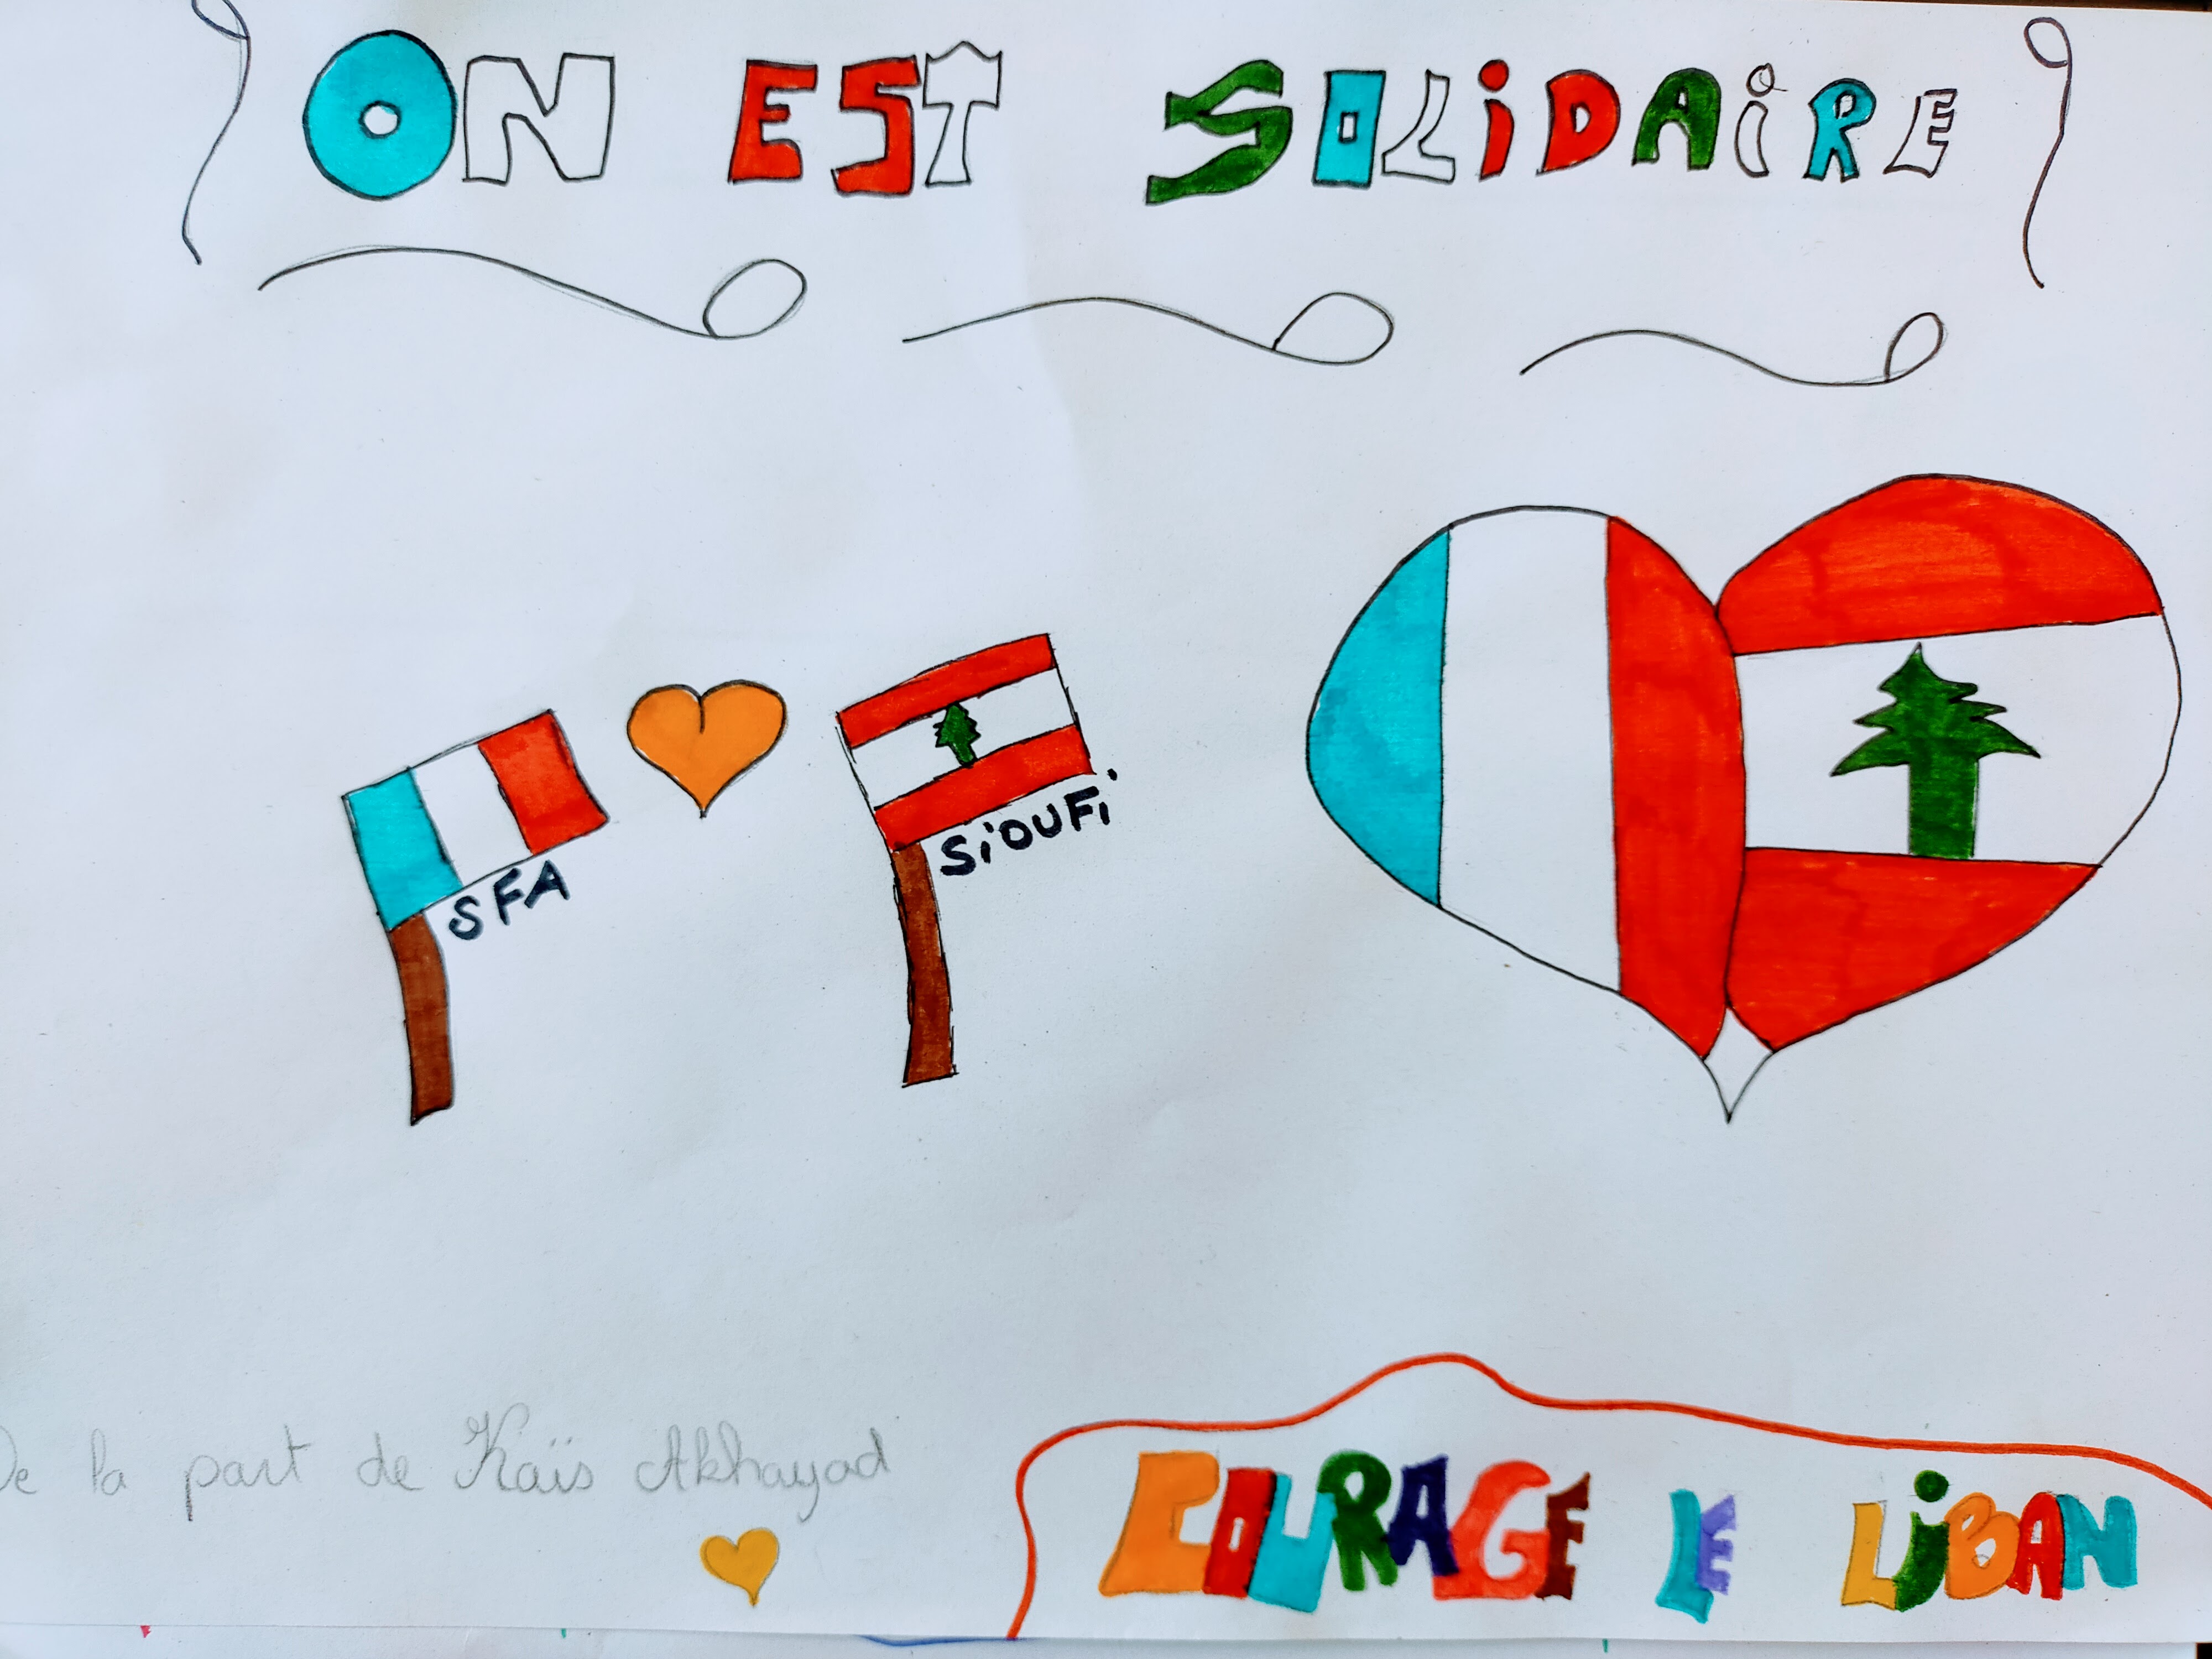 ON EST SOLiDAiRE
SFA
SiOUFi
De la part de Kaïs Akhayad
COURAGE LE LiBAN